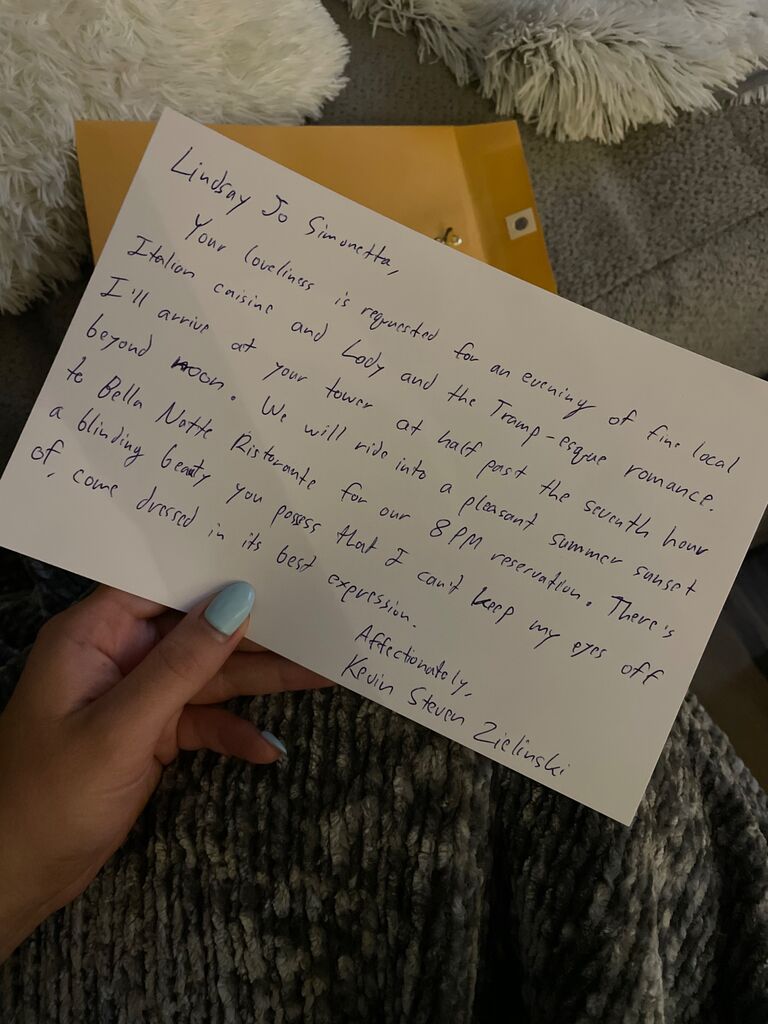 Lindsay Jo Simonetta,
Your loveliness is requested for an evening of fine local
Italian caisine and Lady and the Tramp-esque romance.
I'll arrive at your tower at half past the seventh hour
beyond noon. We will ride into a pleasant summer sunset
to Bella Notte Ristorante for our 8PM reservation. There's
a blinding beauty you possess that I can't keep my eyes off
of, come dressed in its best expression.
Affectionately,
Kevin Steven Zielinski